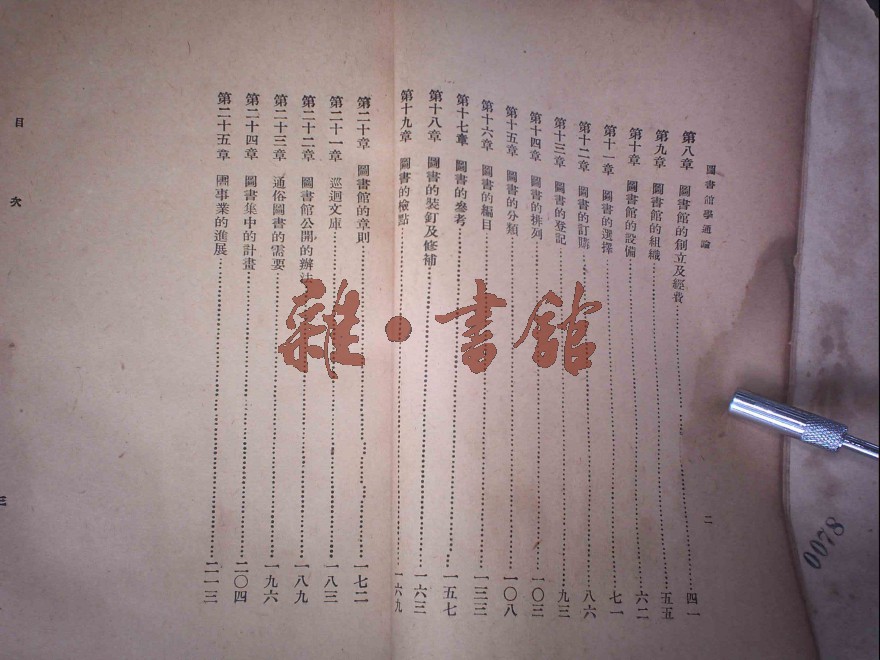 圖書館學通論
二
第八章　圖書館的創立及經費 四一
第九章　圖書館的組織 五五
第十章　圖書館的設備 六二
第十一章　圖書的選擇 七一
第十二章　圖書的訂購 八六
第十三章　圖書的登記 九三
第十四章　圖書的排列 一〇三
第十五章　圖書的分類 一〇八
第十六章　圖書的編目 一三三
第十七章　圖書的參考 一五七
第十八章　圖書的裝釘及修補 一六三
第十九章　圖書的檢點 一六九
第二十章　圖書館的章則 一七二
第二十一章　巡迴文庫 一八三
第二十二章　圖書館公開的辦法 一八九
第二十三章　通俗圖書的需要 一九六
第二十四章　圖書集中的計畫 二〇四
第二十五章　圕事業的進展 二一三
目次
三
雜·書館
0078